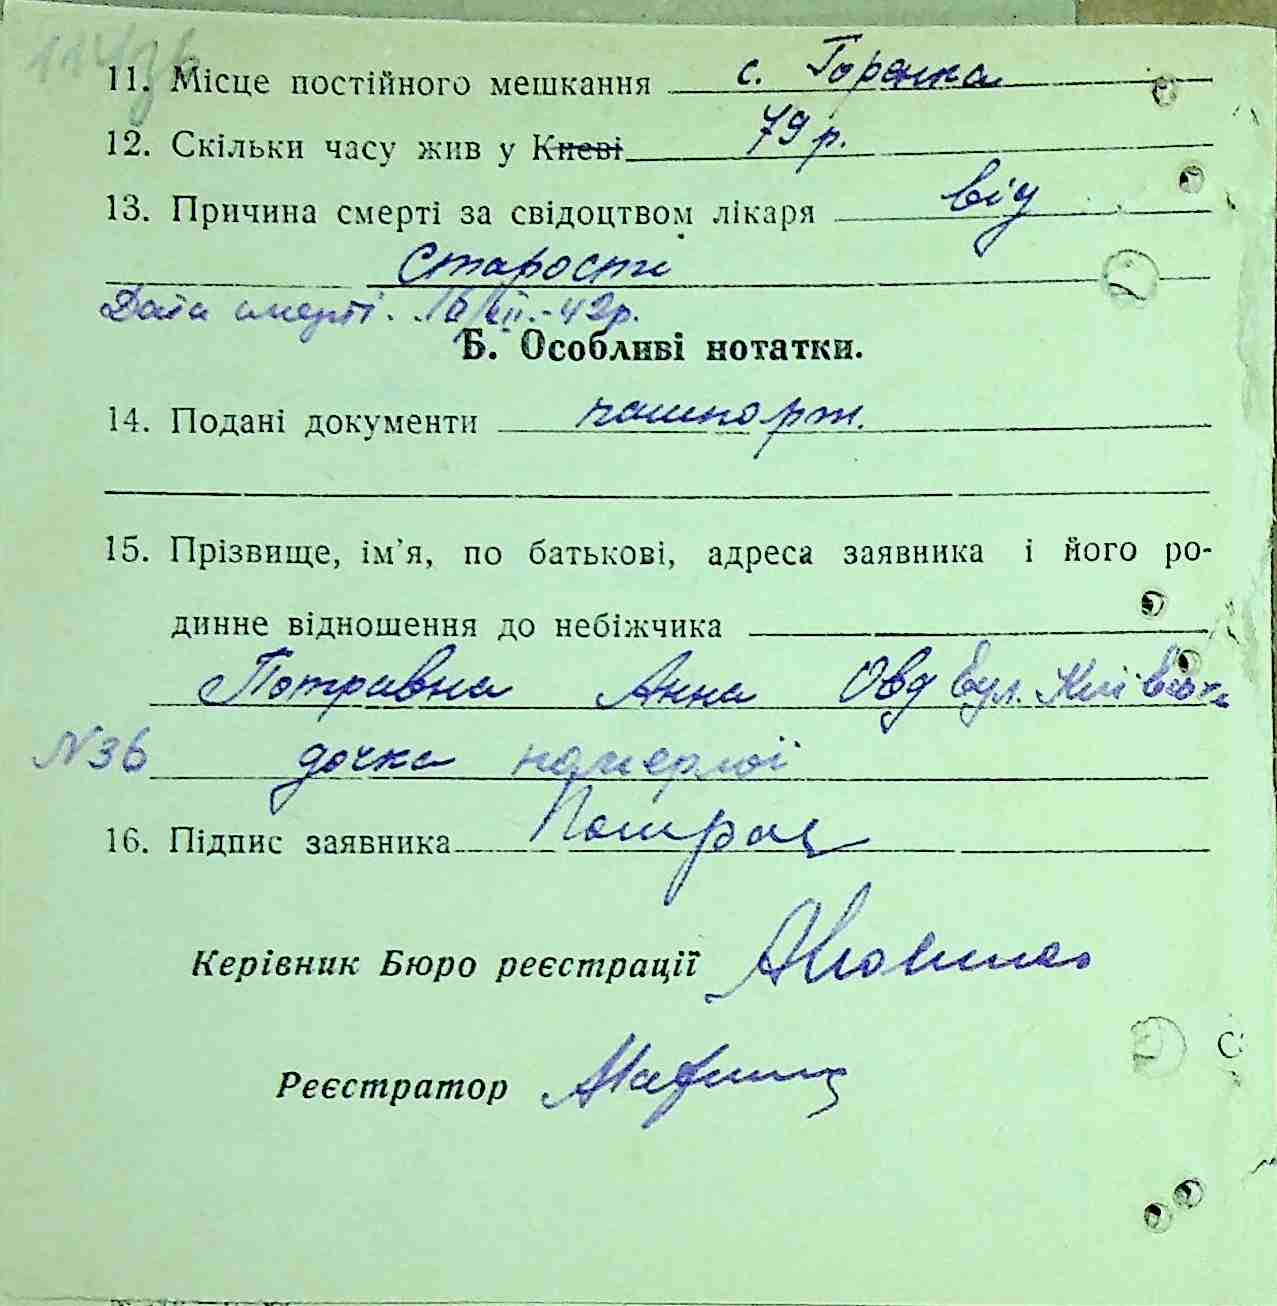 11. Місце постійного мешкання с. Горенка
12. Скільки часу жив у Києві 79 р.
13. Причина смерті за свідоцтвом лікаря від
старости
Дата смерті. 16/VII.-42р.
Б. Особливі нотатки.
14. Подані документи пашпорт.
15. Прізвище, ім'я, по батькові, адреса заявника і його ро-
динне відношення до небіжчика
Потравна Анна Овд вул. Київська
№36 дочка померлої
16. Підпис заявника Потрав
Керівник Бюро реєстрації
Реєстратор